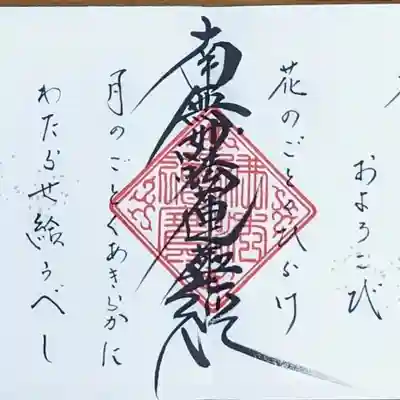 およろこび
花のごとくひらけ
南無妙法蓮華経
月のごとくあきらかに
わたらせ給うべし